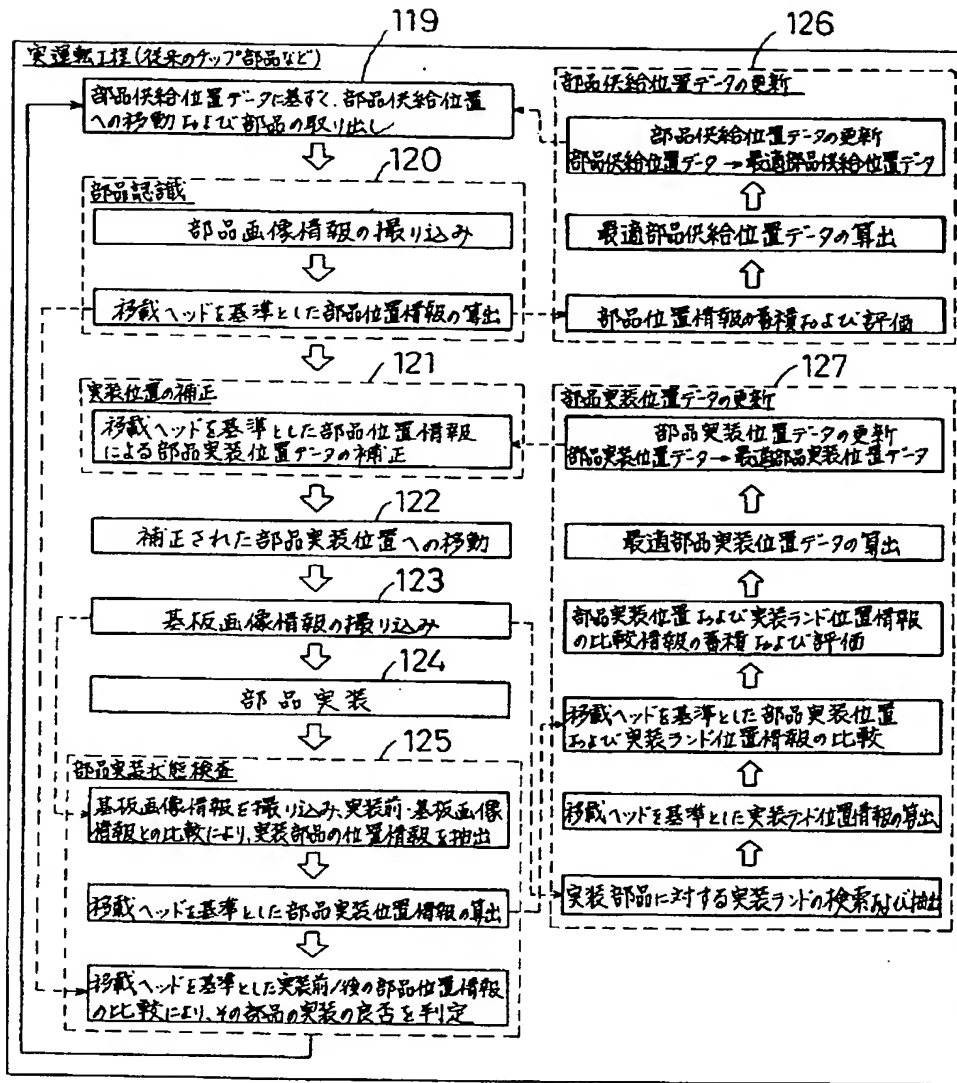 119
126
実運転工程(従来のチップ部品など)
部品供給位置データに基ずて、部品供給位置
への移動および部品の取り出し
120
部品認識
部品画像情報の撮り込み
移載ヘッドを基準とした部品位置情報の算出
121
実装位置の補正
移載ヘッドを基準とした部品位置情報
による部品実装位置データの補正
122
補正された部品実装位置への移動
123
基板画像情報の撮り込み
124
部品実装
125
部品実装状態検査
基板画像情報を撮り込み、実装前・基板画像
情報との比較により、実装部品の位置情報を抽出
移載ヘッドを基準とした部品実装位置情報の算出
移載ヘッドを基準とした実装前/後の部品位置情報
の比較により、その部品の実装の良否を判定
部品供給位置データの更新
部品供給位置データの更新
部品供給位置データ→最適部品供給位置データ
最適部品供給位置データの算出
部品位置情報の蓄積および評価
127
部品実装位置データの更新
部品実装位置データの更新
部品実装位置データ→最適部品実装位置データ
最適部品実装位置データの算出
部品実装位置および実装ランド位置情報
の比較情報の蓄積および評価
移載ヘッドを基準とした部品実装位置
および実装ランド位置情報の比較
移載ヘッドを基準とした実装ランド位置情報の算出
実装部品に対する実装ランドの検索および抽出